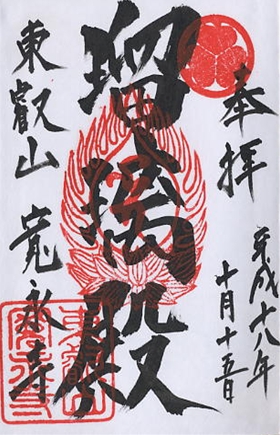 奉拝
平成十八年
十月十五日
瑠璃殿
東叡山 寛永寺